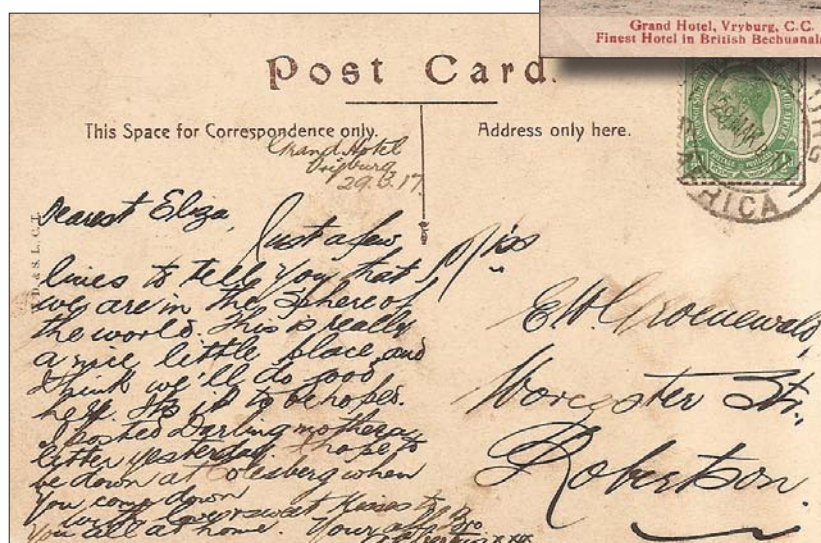 Grand Hotel, Vryburg, C.C.
Finest Hotel in British Bechuanala
Post Card.
This Space for Correspondence only.
Address only here.
AFRICA
Grand Hotel
Vryburg
29.3.17.
Dearest Eliza,
Just a few
lines to tell you that
we are in the Sphere of
the world. This is really
a nice little place and
I think we'll do good
here. It is to be hoped.
I posted Darling mother a
letter yesterday. I hope to
be down at Colesberg when
you come down
with love & sweet Kisses to
you all at home. Your
xxx
Miss
E.W. Groenewald,
Worcester Str.
Robertson.